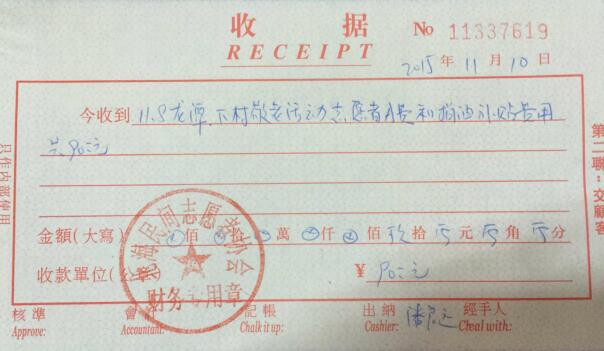 收据
RECEIPT
No 11337619
2015年11月10日
今收到 11.8龙潭下村敬老活动志愿者A费和拍油补贴费用
共90元
金額(大寫) ⊗佰⊗拾⊗萬⊗仟⊗佰玖拾零元零角零分
收款單位(公章) ¥ 90元
民间志愿者协会
财务专用章
核準 會計 記帳 出納 潘 經手人
Approve: Accountant: Chalk it up: Cashier: Cheal with:
只作内部使用
第二聯:交顧客